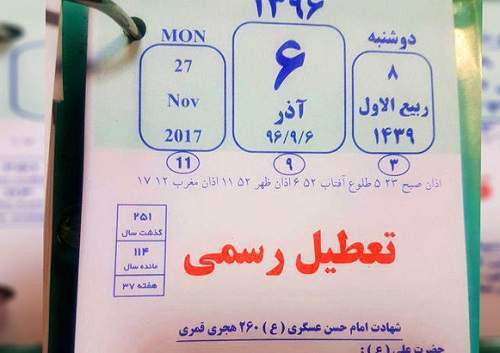 ۱۳۹۶
MON
27
Nov
2017
11
۶
آذر
۹۶/۹/۶
۹
دوشنبه
۸
ربیع الاول
۱۴۳۹
۳
اذان صبح ۲۳ ۵ طلوع آفتاب ۵۲ ۶ اذان ظهر ۵۲ ۱۱ اذان مغرب ۱۲ ۱۷
۲۵۱
گذشت سال
۱۱۴
مانده سال
هفته ۳۷
تعطیل رسمی
شهادت امام حسن عسگری (ع) ۲۶۰ هجری قمری
حضرت علی (ع) :